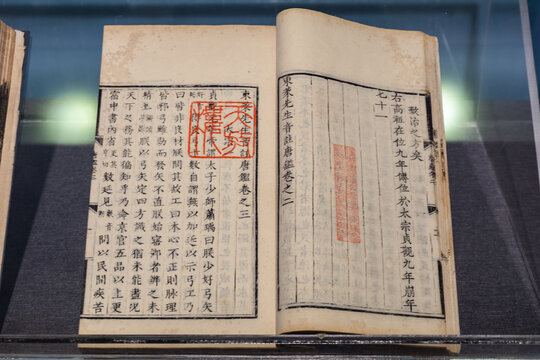 致治之方矣
右高祖在位九年傳位於太宗貞觀九年崩年
七十一
東萊先生音註唐鑑卷之二
東萊先生音註唐鑑卷之三
太宗
貞觀
謂太子少師蕭瑀曰朕少好弓矢
得良弓十數自謂無以加近以示弓工乃
曰皆非良材朕問其故工曰木心不正則脉理
皆邪弓雖勁而發矢不直朕始寤鄉者辨之未
精也朕以弓矢定四方識之猶未能盡況
天下之務其能徧知乎乃令京官五品以上更
宿中書內省數延見問以民間疾苦